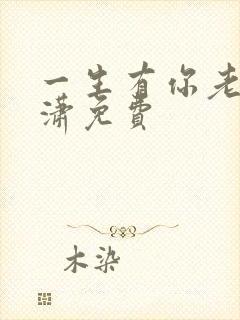 一生有你老
潇免费
木染